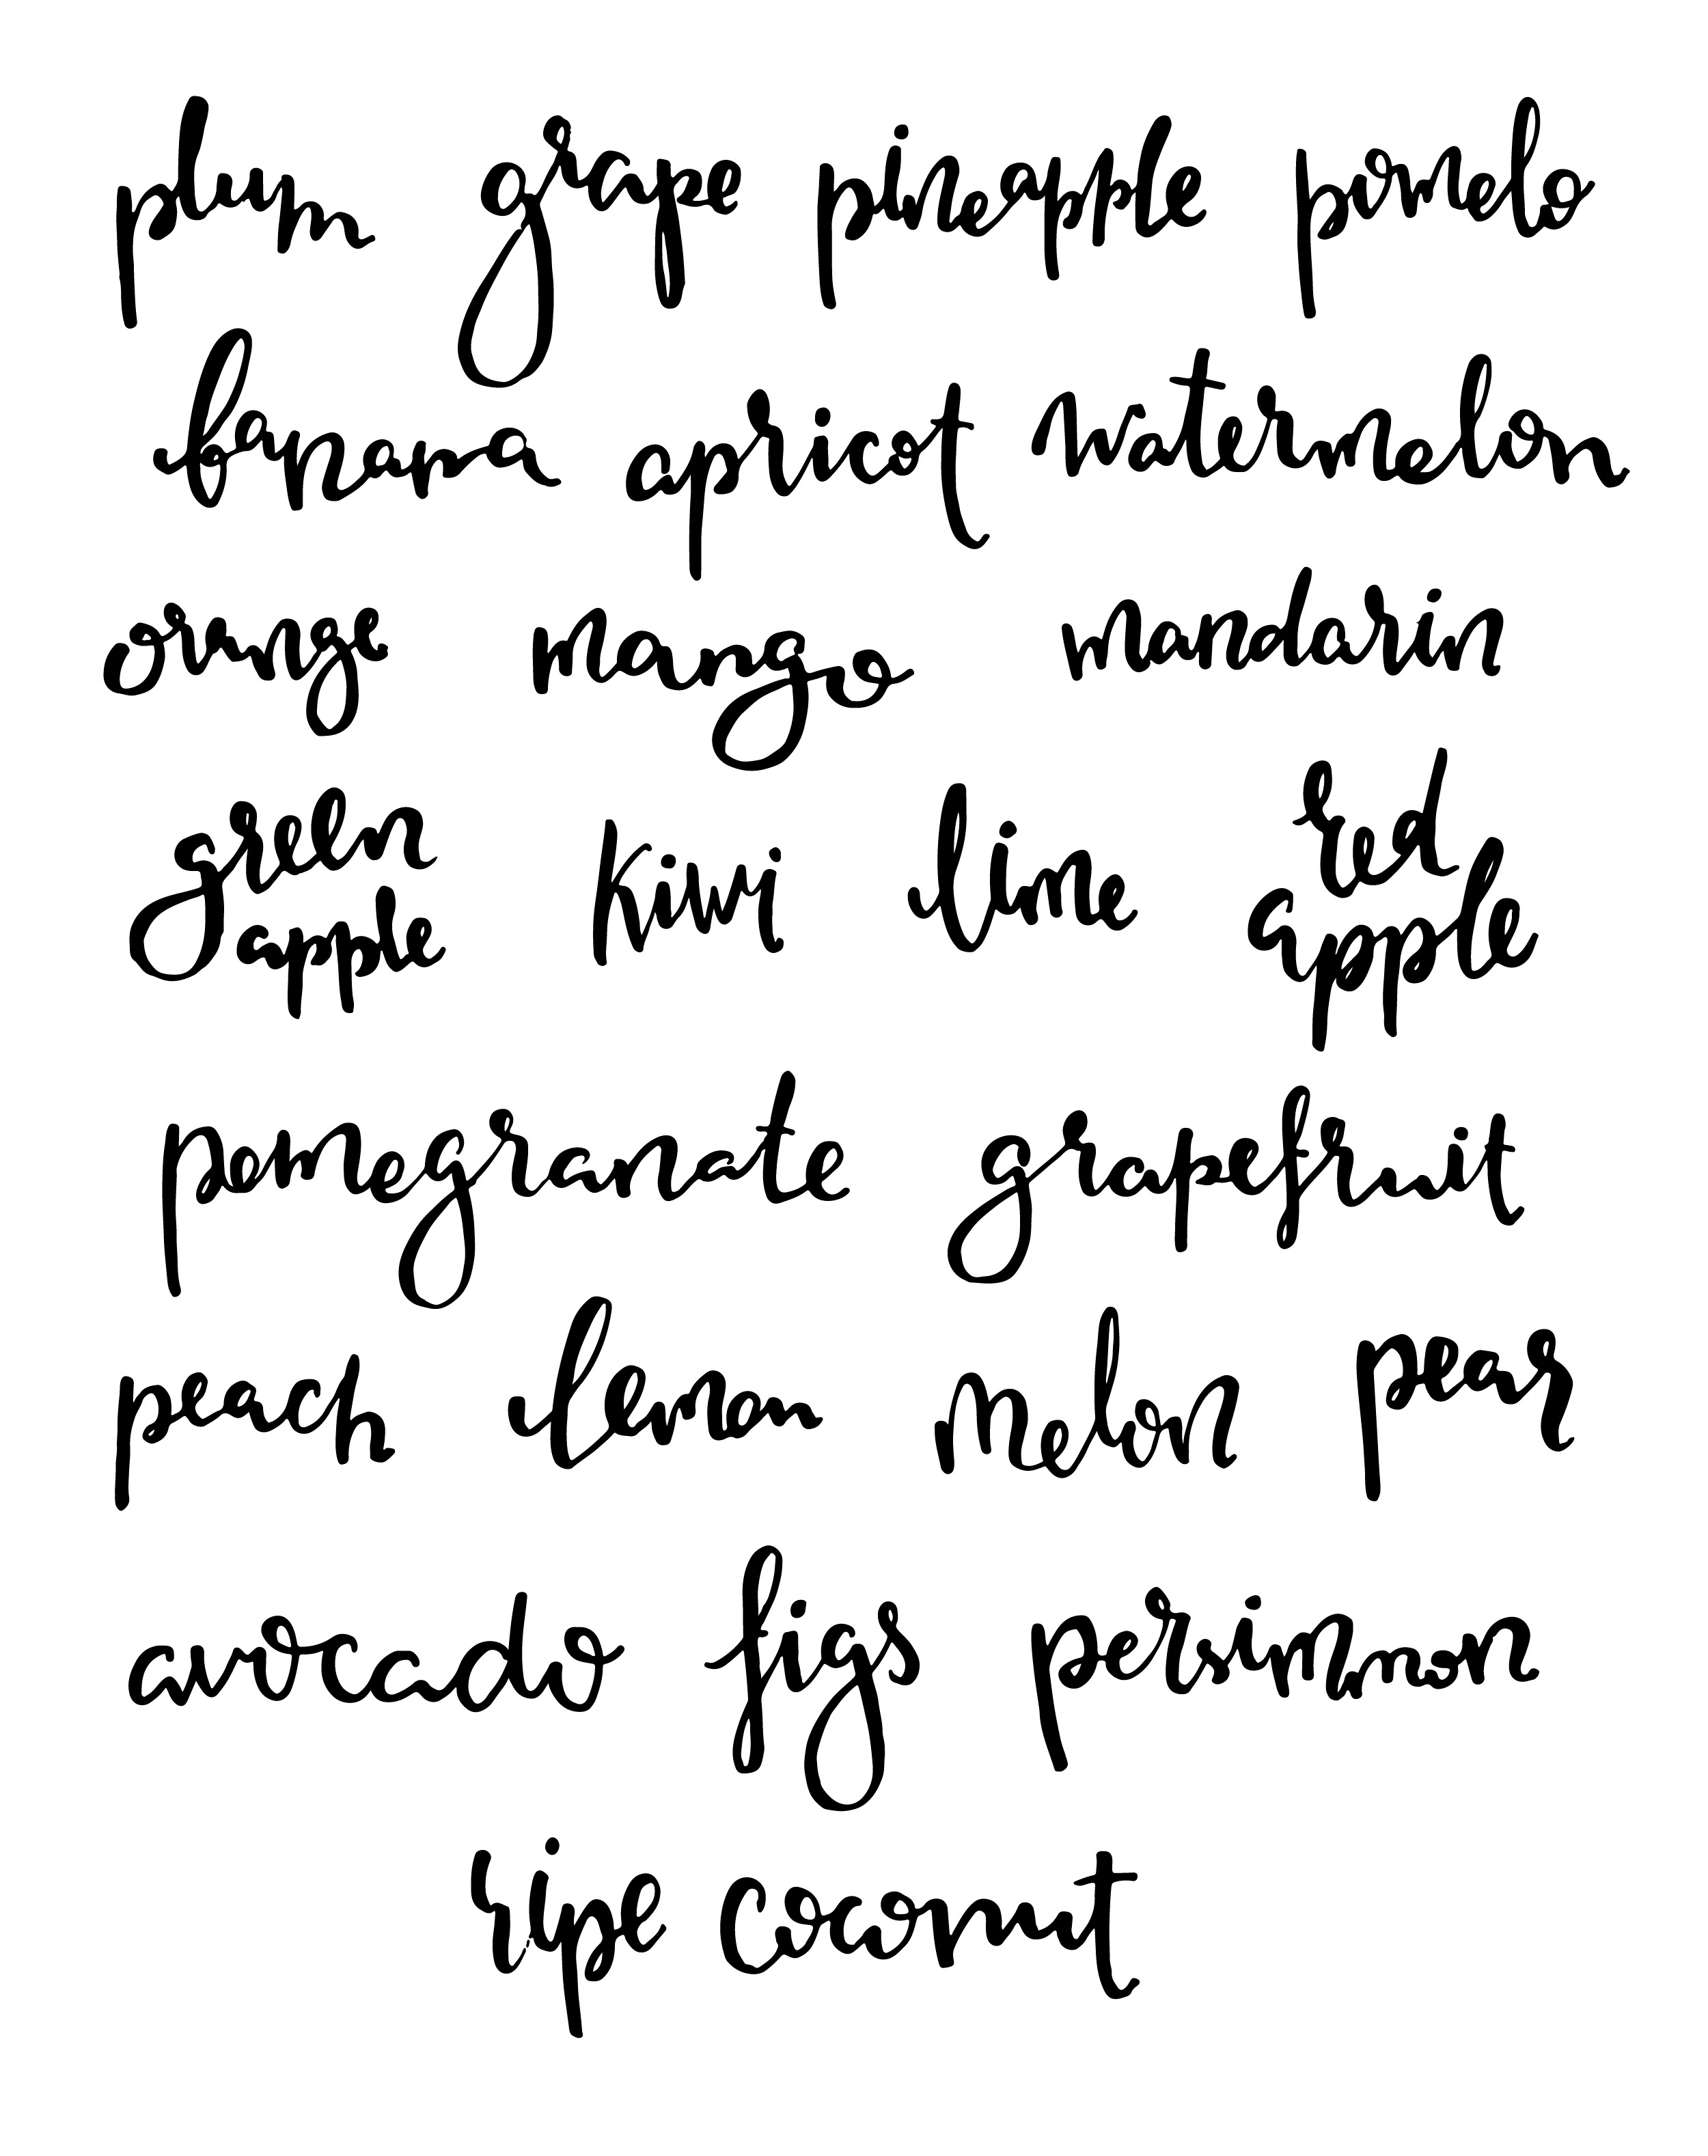 plum grape pineapple pomelo
banana apricot watermelon
orange mango mandarin
green kiwi lime red
apple apple
pomegranate grapefruit
peach lemon melon pear
avocado figs persimmon
ripe coconut